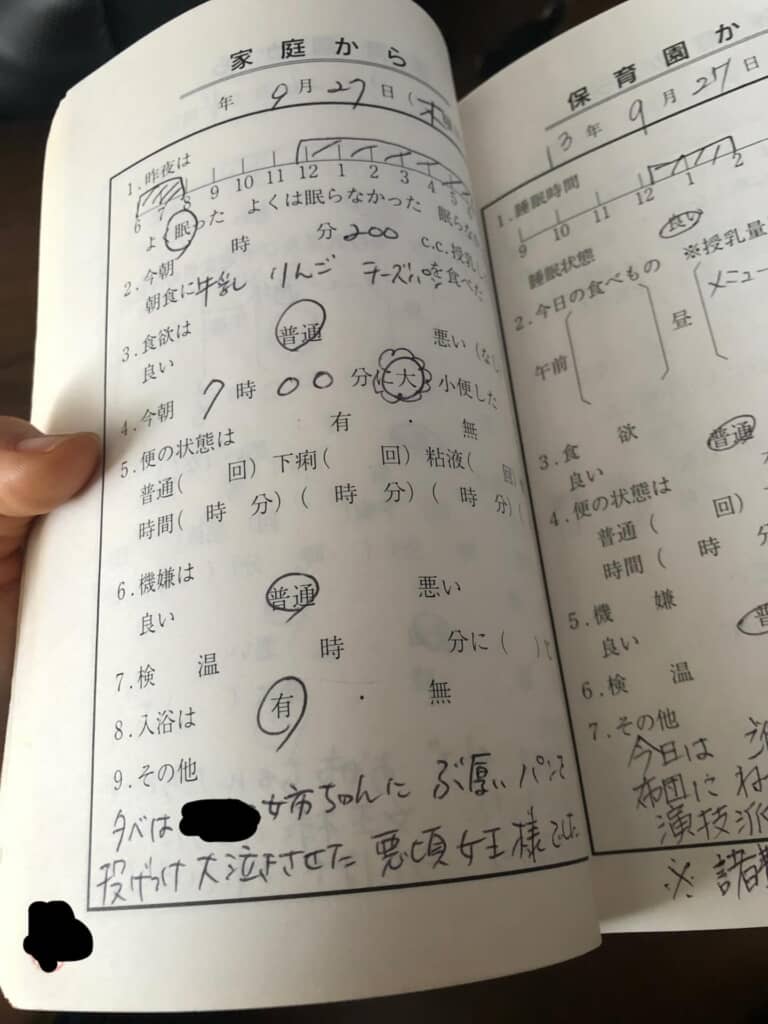 家庭から
年 9月27日(木
1.昨夜は
6 7 8 9 10 11 12 1 2 3 4 5 6
よく眠った よくは眠らなかった 眠らな
2.今朝 時 分 200 c.c.授乳し
朝食に牛乳 りんご チーズパンを食べた
3.食欲は
良い 普通 悪い(なし
4.今朝 7時00分に大 小便した
5.便の状態は 有 ・ 無
普通( 回) 下痢( 回) 粘液( 回
時間( 時 分)( 時 分)( 時 分)(
6.機嫌は
良い 普通 悪い
7.検温 時 分に( )で
8.入浴は 有 ・ 無
9.その他
夕べは 姉ちゃんに ぶ厚いパンフ
投げつけ 大泣きさせた 女王様でした
保育園か
3年 9月27日
1.睡眠時間
9 10 11 12 1 2
睡眠状態 良い
2.今日の食べもの ※授乳量
午前 昼 メニュー
3.食欲
良い 普通
4.便の状態は
普通( 回)
時間( 時 分
5.機嫌
良い 普
6.検温
7.その他
今日は
布団に ね
演技派
※ 諸費